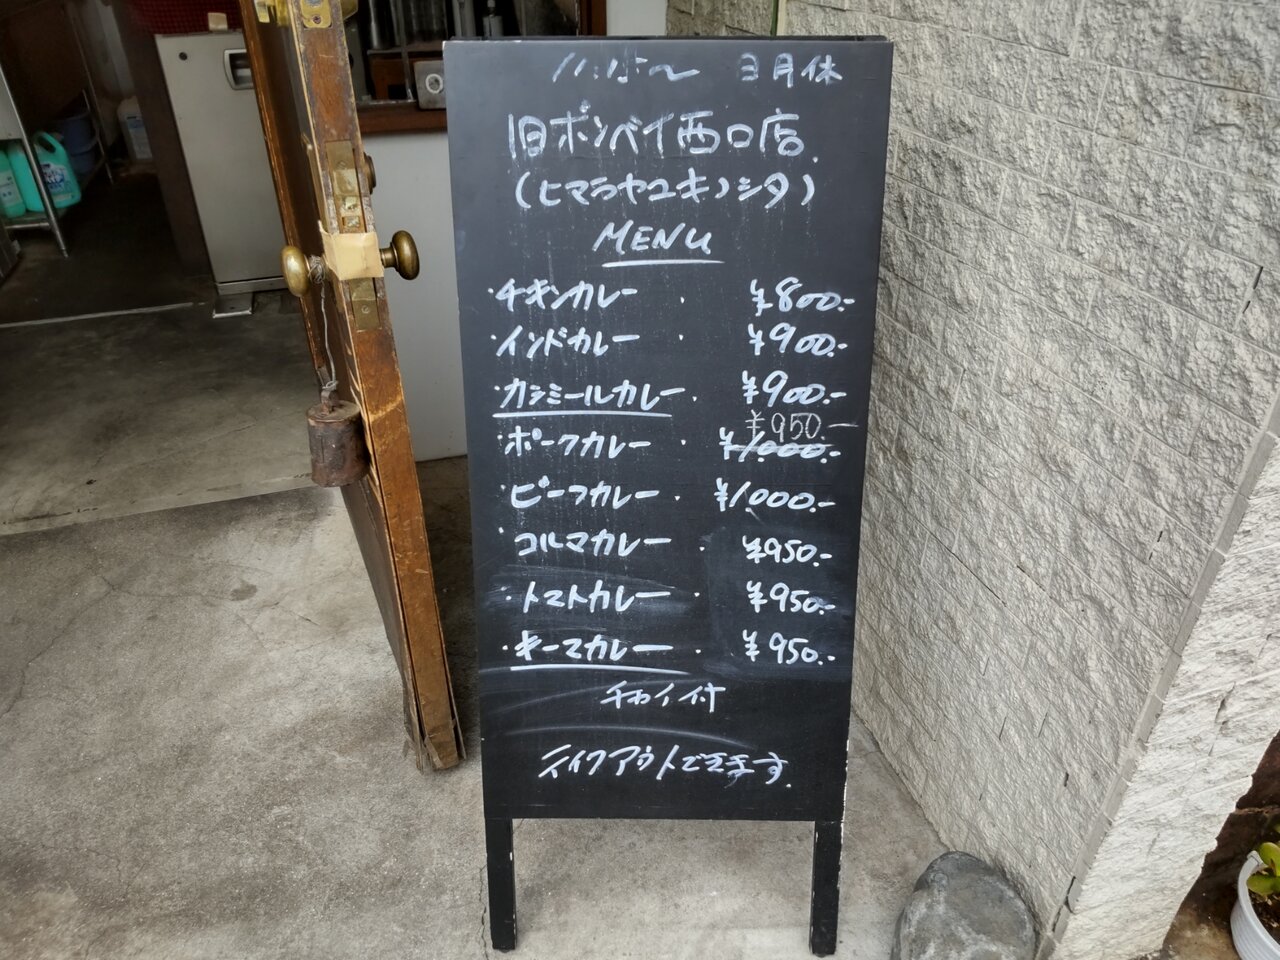 11:15〜 日月休
旧ボンベイ西口店.
(ヒマラヤユキノシタ)
MENU
・チキンカレー ・ ¥800.-
・インドカレー ・ ¥900.-
・カシミールカレー ・ ¥900.-
¥950.-
・ポークカレー ・ ¥1.000.-
・ビーフカレー ・ ¥1.000.-
・コルマカレー ・ ¥950.-
・トマトカレー ・ ¥950.-
・キーマカレー ・ ¥950.-
チャイ付
テイクアウトできます.